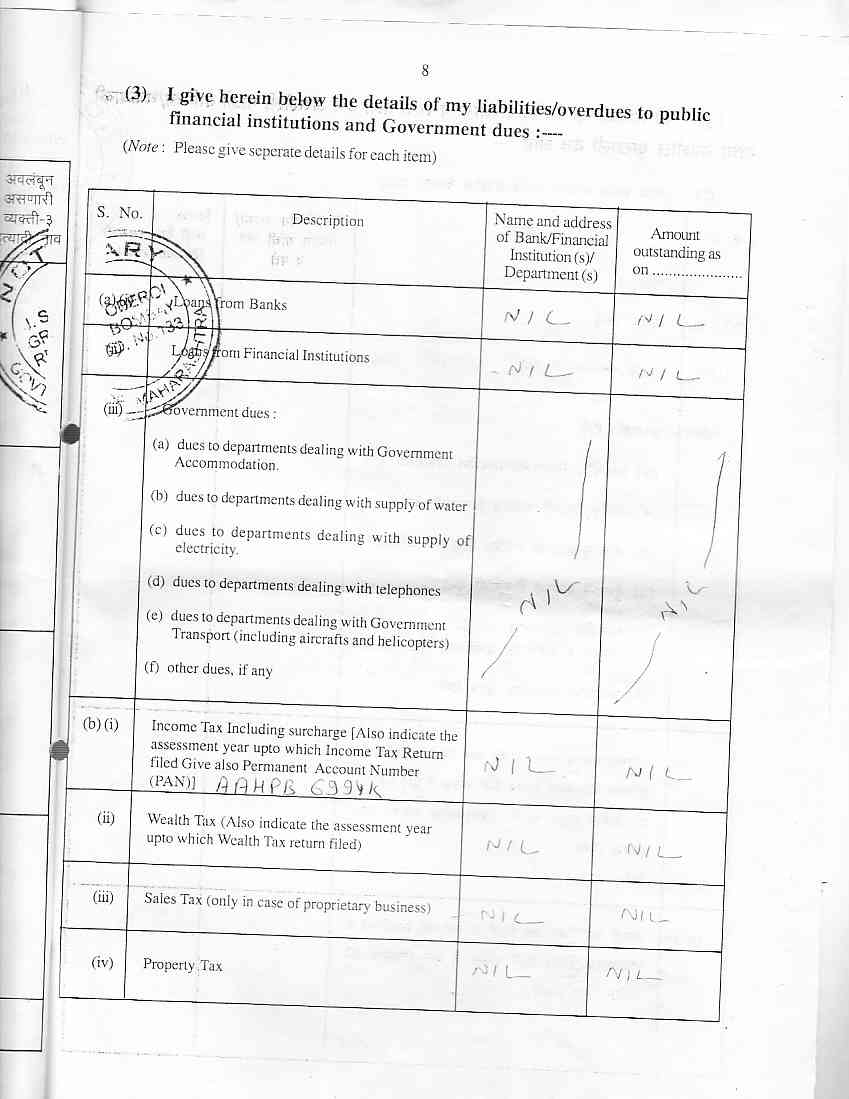 8
(3) I give herein below the details of my liabilities/overdues to public
financial institutions and Government dues :----
(Note : Please give seperate details for each item)
अवलंबून
असणारी
व्यक्ती-३
S. No.
Description
Name and address
of Bank/Financial
Institution (s)/
Department (s)
Amount
outstanding as
on ......................
ARY
OBEROI
BOMBAY
MAHARASHTRA
NOT
GOVT
Loans from Banks
NIL
NIL
(ii)
Loans from Financial Institutions
NIL
NIL
(iii)
Government dues :
(a) dues to departments dealing with Government
Accommodation.
(b) dues to departments dealing with supply of water
(c) dues to departments dealing with supply of
electricity.
(d) dues to departments dealing with telephones
(e) dues to departments dealing with Government
Transport (including aircrafts and helicopters)
(f) other dues, if any
NIL
NIL
(b) (i)
Income Tax Including surcharge [Also indicate the
assessment year upto which Income Tax Return
filed Give also Permanent Account Number
(PAN)]
NIL
NIL
(ii)
Wealth Tax (Also indicate the assessment year
upto which Wealth Tax return filed)
NIL
NIL
(iii)
Sales Tax (only in case of proprietary business)
NIL
NIL
(iv)
Property Tax
NIL
NIL